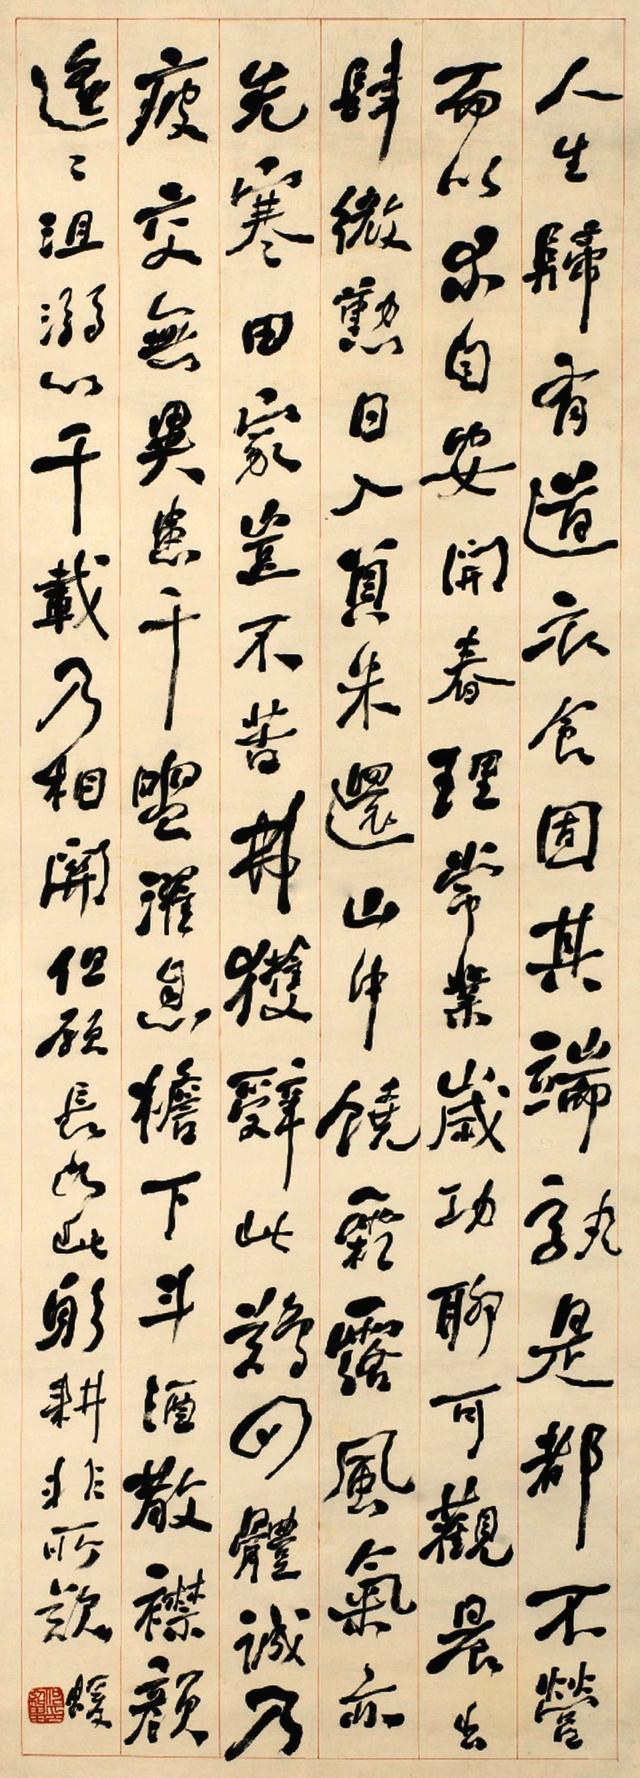 人生歸有道衣食固其端孰是都不營
而以求自安開春理常業歲功聊可觀晨出
肆微懃日入負米還山中饒霜露風氣亦
先寒田家豈不苦弗獲辭此難四體誠乃
疲交無異患干盥濯息檐下斗酒散襟顏
遙〻沮溺心千載乃相關但願長如此躬耕非所歎 暖